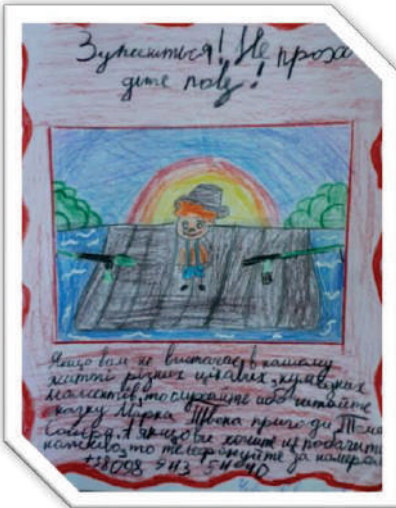 Зупиниться! Не прохо
дите повз!
Якщо вам не вистачає в вашому
житті різних цікавих, кумедних
моментів, то слухайте або читайте
казку Марка Твена пригоди Тома
Сойєра. А якщо ви хочите це побачити
наживо, то телефонуйте за номером
+38098 943 54 40